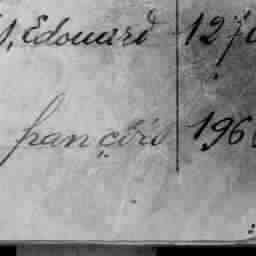 Edouard 127
françois 196